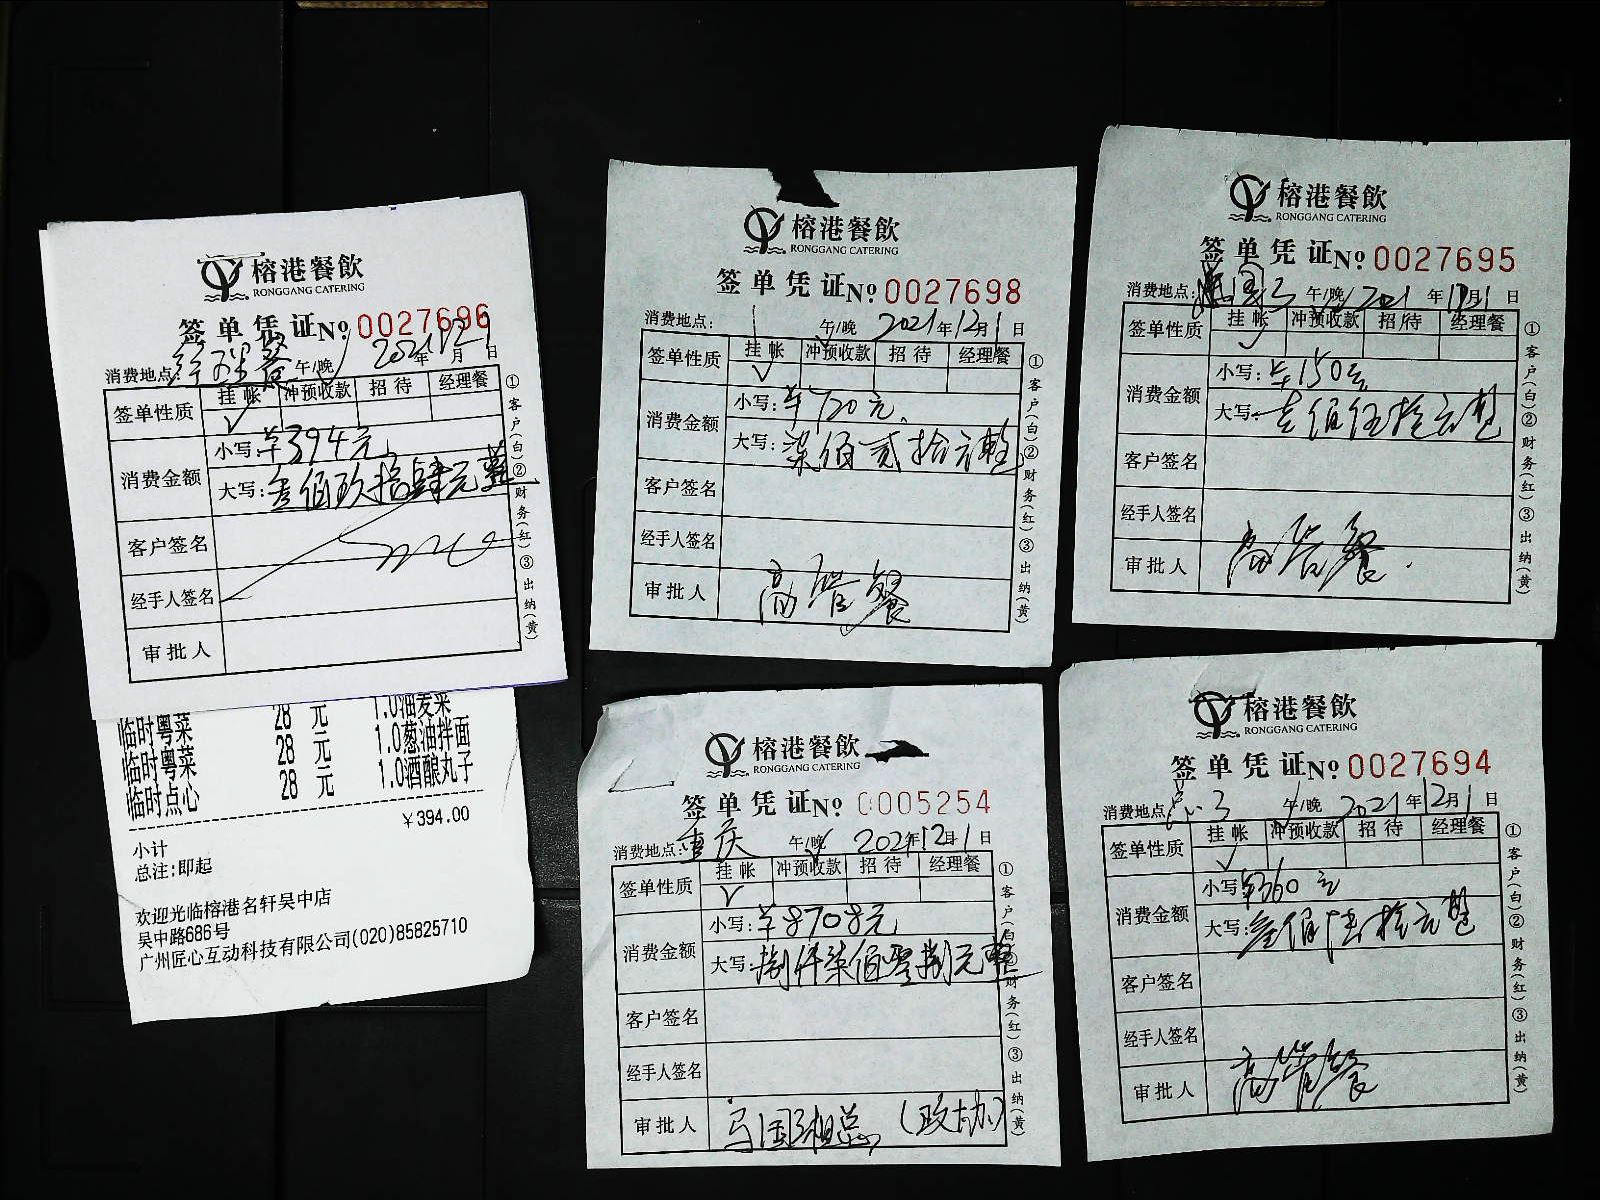 榕港餐飲
RONGGANG CATERING
签单凭证No 0027696
消费地点: 经理餐 午/晚 2021年12月1日
签单性质 挂帐 冲预收款 招待 经理餐
消费金额
小写: ¥394元
大写: 叁佰玖拾肆元整
客户签名
经手人签名
审批人
①客户(白)②财务(红)③出纳(黄)
临时粤菜 28 元 1.0油麦菜
临时粤菜 28 元 1.0葱油拌面
临时点心 28 元 1.0酒酿丸子
¥394.00
小计
总注:即起
欢迎光临榕港名轩吴中店
吴中路686号
广州匠心互动科技有限公司(020)85825710
榕港餐飲
RONGGANG CATERING
签单凭证No 0027698
消费地点: 午/晚 2021年12月1日
签单性质 挂帐 冲预收款 招待 经理餐
消费金额
小写: ¥720元
大写: 柒佰贰拾元整
客户签名
经手人签名
审批人 高管餐
①客户(白)②财务(红)③出纳(黄)
榕港餐飲
RONGGANG CATERING
签单凭证No 0027695
消费地点: 午/晚 2021年12月1日
签单性质 挂帐 冲预收款 招待 经理餐
消费金额
小写: ¥150元
大写: 壹佰伍拾元整
客户签名
经手人签名
审批人 高管餐
①客户(白)②财务(红)③出纳(黄)
榕港餐飲
RONGGANG CATERING
签单凭证No 0005254
消费地点: 重庆 午/晚 2021年12月1日
签单性质 挂帐 冲预收款 招待 经理餐
消费金额
小写: ¥8708元
大写: 捌仟柒佰零捌元整
客户签名
经手人签名
审批人 马国祖总(政办)
①客户(白)②财务(红)③出纳(黄)
榕港餐飲
RONGGANG CATERING
签单凭证No 0027694
消费地点 午/晚 2021年12月1日
签单性质 挂帐 冲预收款 招待 经理餐
消费金额
小写 ¥360元
大写: 叁佰陆拾元整
客户签名
经手人签名
审批人 高管餐
①客户(白)②财务(红)③出纳(黄)